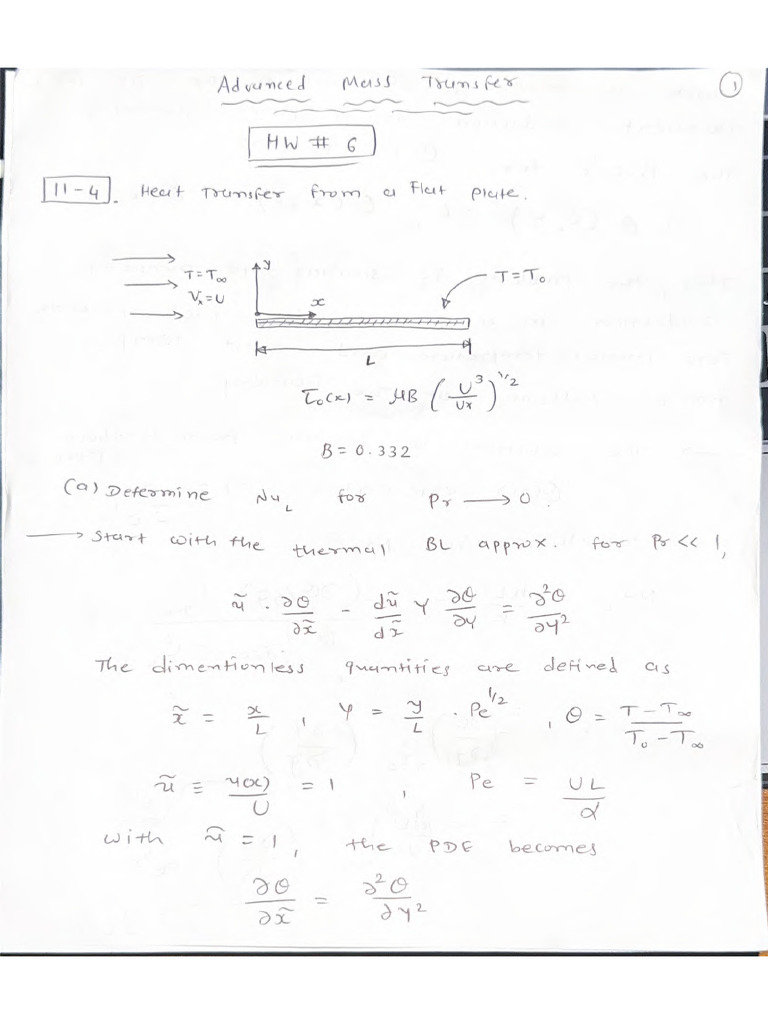 Advanced Mass Transfer
①
HW # 6
11-4. Heat Transfer from a Flat plate.
T = T∞
Vₓ = U
y
x
T = T₀
L
τ₀(x) = μB (U³/υx)^1/2
B = 0.332
(a) Determine Nu_L for Pr → 0.
→ Start with the thermal BL approx. for Pr << 1,
ũ · ∂θ/∂x̃ - dũ/dx̃ Y ∂θ/∂Y = ∂²θ/∂Y²
The dimentionless quantities are defined as
x̃ = x/L , Y = y/L · Pe^1/2 , θ = T - T∞/T₀ - T∞
ũ ≡ u(x)/U = 1 , Pe = UL/α
with ũ = 1, the PDE becomes
∂θ/∂x̃ = ∂²θ/∂Y²